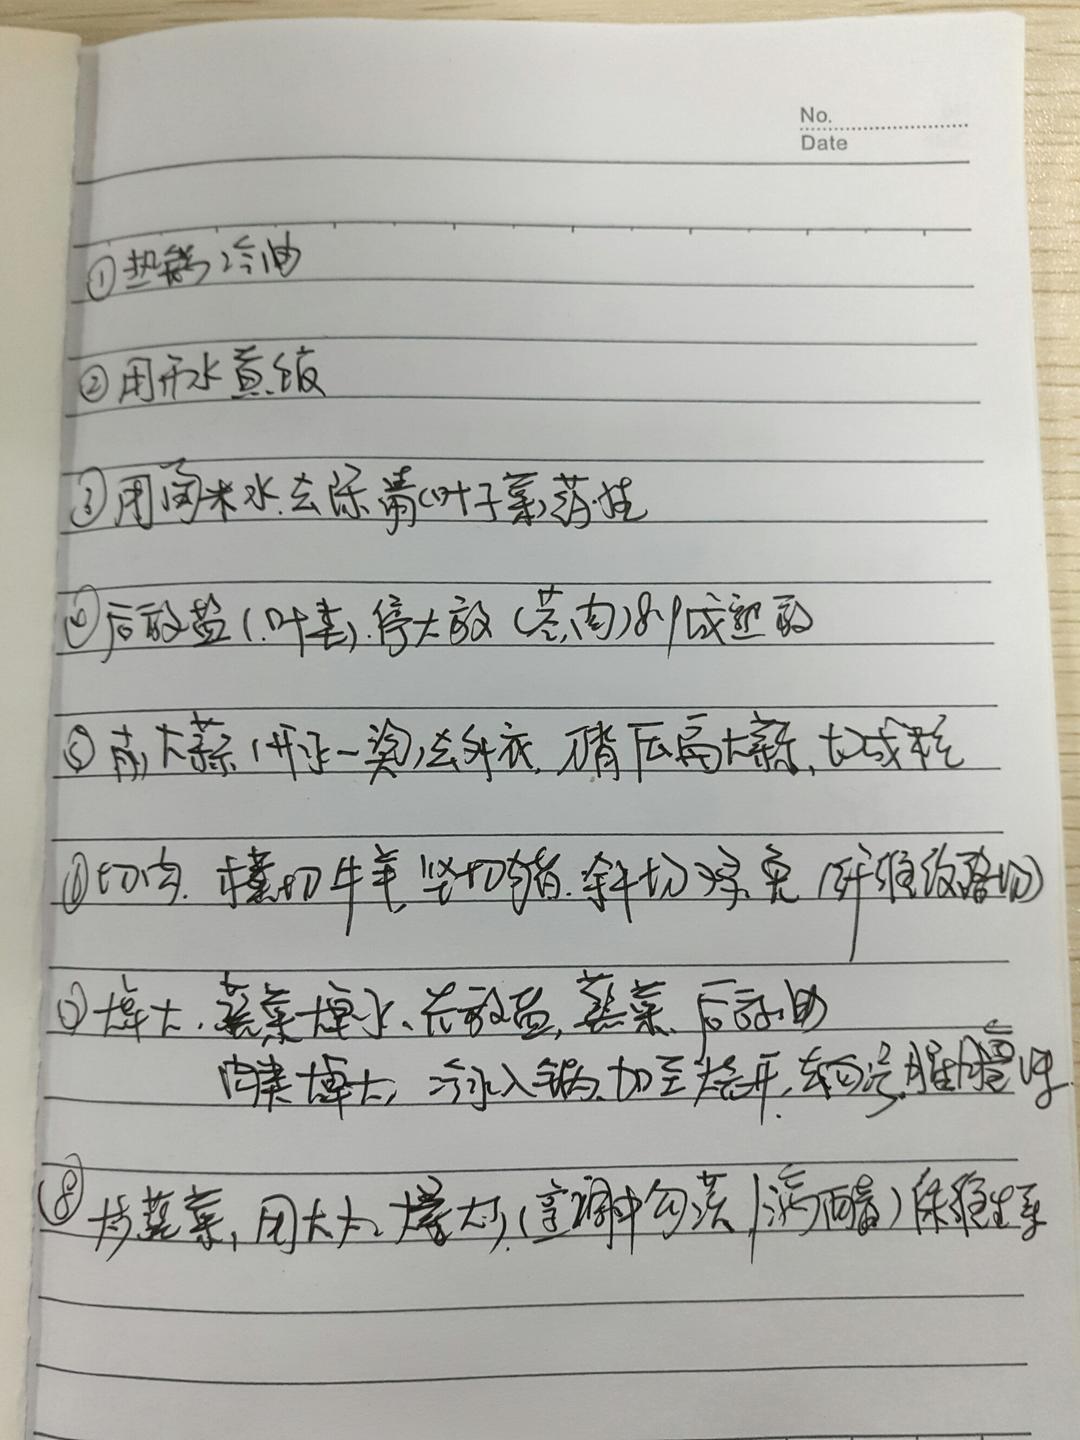 No.
Date
①热锅冷油
②用开水煮饭
③用淘米水去除青(叶子菜)药性
④后放盐(叶菜),停火放(荤,肉)8分成熟放
⑤ 大蒜(开水一烫)去外衣,刀背压扁大蒜,切成粒
⑥切肉.横切牛羊,竖切猪.斜切 (纤维纹路切)
⑦焯水.蔬菜焯水、先放盐,蔬菜,后放油
肉类焯水,冷水入锅,加至烧开,
⑧炒蔬菜,用大火,爆炒,(烹调中勾芡,滴醋)保维生素